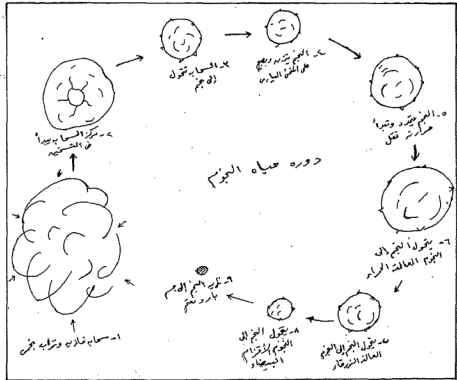 دورة حياة النجوم
١- سحاب غازي وتراب نجمي
٢- مركز السحاب يبدأ
في التسخين
٣- السحاب تتحول
إلى نجم
٤- النجم
على
٥- النجم يتمدد وتبدأ
حرارته تقل
٦- يتحول النجم إلى
النجوم العمالقة الحمراء
٧- يتحول النجم إلى النجوم
العمالقة الزرقاء
٨- يتحول النجم إلى
النجوم الأقزام
البيضاء
٩- النجم إلى جسم
بارد معتم